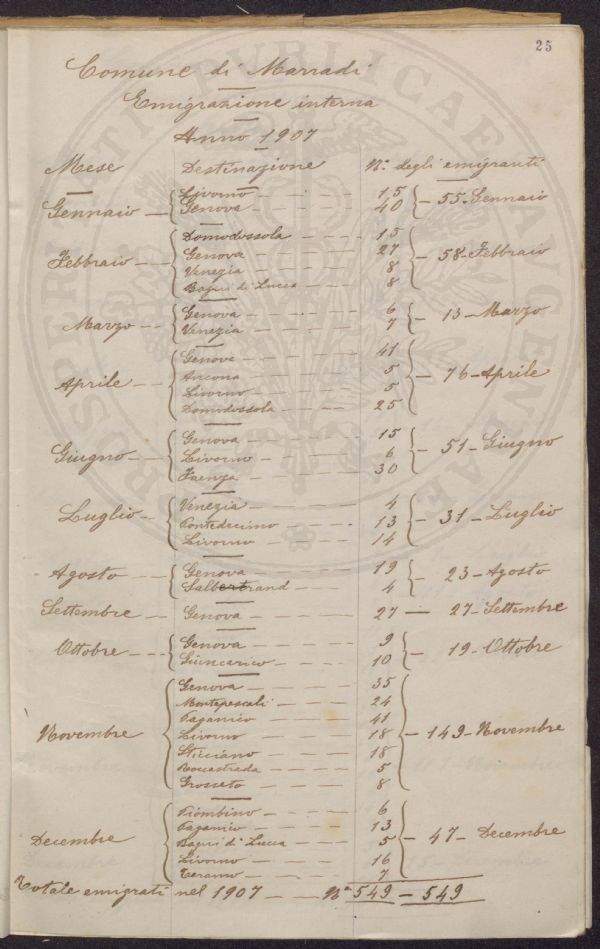 25
Comune di Marradi
Emigrazione interna
Anno 1907
Mese Destinazione N.º degli emigranti
Livorno 15
Gennaio Genova 40 55 - Gennaio
Domodossola 15
Genova 27
Febbraio Venezia 8 58 - Febbraio
Bagni di Lucca 8
Genova 6
Marzo Venezia 7 13 - Marzo
Genova 41
Aprile Ancona 5 76 - Aprile
Livorno 5
Domodossola 25
Genova 15
Giugno Livorno 6 51 - Giugno
Faenza 30
Venezia 4
Luglio Pontedecimo 13 31 - Luglio
Livorno 14
Agosto Genova 19 23 - Agosto
Salbertrand 4
Settembre Genova 27 27 - Settembre
Ottobre Genova 9 19 - Ottobre
Giuncarico 10
Genova 35
Montepescali 24
Paganico 41
Novembre Livorno 18 149 - Novembre
Sticciano 18
Roccastrada 5
Grosseto 8
Piombino 6
Paganico 13
Decembre Bagni di Lucca 5 47 - Decembre
Livorno 16
Teramo 7
Totale emigrati nel 1907 Nº 549 - 549